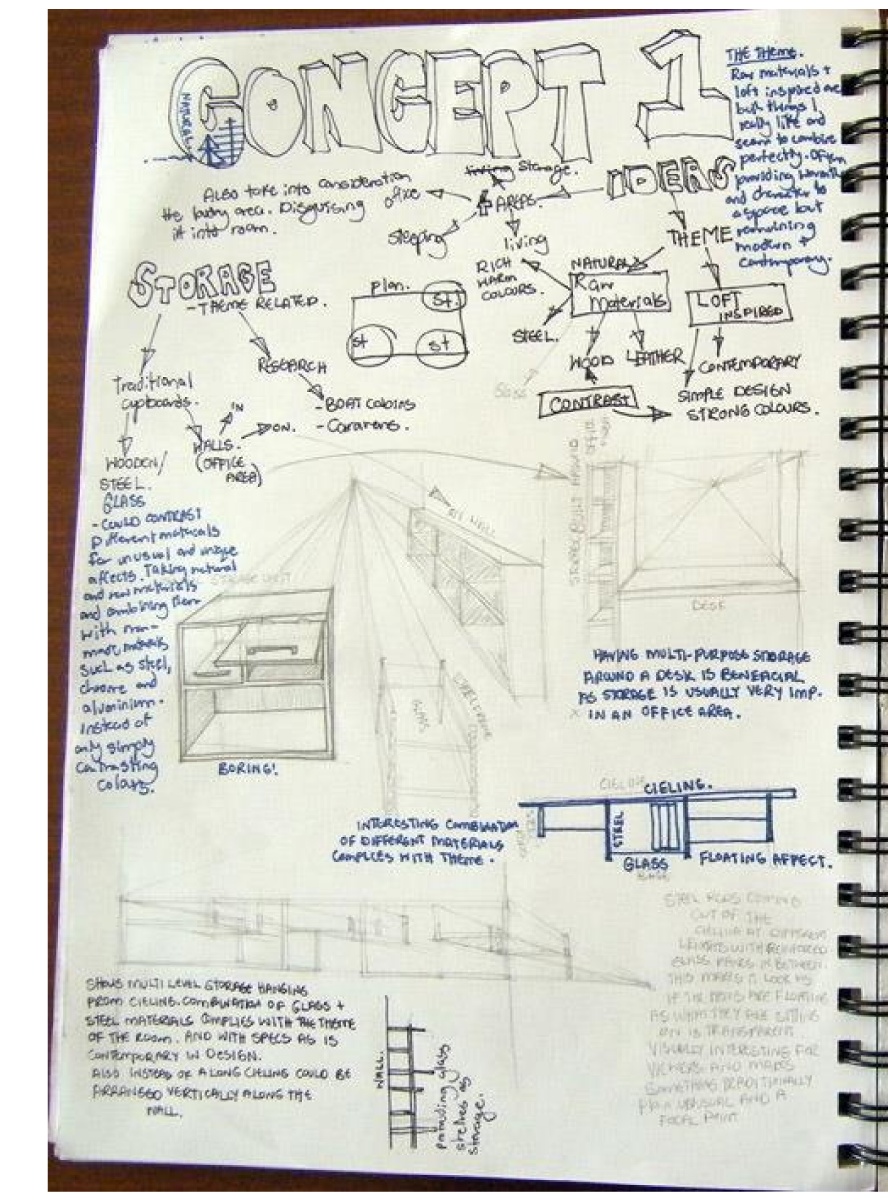 CONCEPT 1
NATURAL
THE THEME.
Raw materials +
loft inspired are
both things I
really like and
seem to combine
perfectly. Often
providing warmth
and character to
a space but
remaining
modern +
contemporary.
IDEAS
living Storage.
4 AREAS.
office
Sleeping
living
ALSO take into consideration
the living area. Disguising
it into room.
THEME
NATURAL
Raw
Materials
RICH
WARM
COLOURS.
STEEL.
WOOD
LEATHER
LOFT
INSPIRED
CONTEMPORARY
CONTRAST
SIMPLE DESIGN
STRONG COLOURS.
STORAGE
- THEME RELATED.
Plan.
St.
St
St
RESEARCH
- BOAT CABINS
- Caravans.
Traditional
cupboards.
IN
ON.
WALLS.
(OFFICE
AREA)
WOODEN/
STEEL.
GLASS
- COULD CONTRAST
Different materials
for unusual and unique
affects. Taking natural
and raw materials
and combining them
with man-
made materials
such as steel,
chrome and
aluminium.
Instead of
only simply
contrasting
colours.
STORAGE UNIT
BORING!
IN WALL
GLASS
STORAGE BUILT AROUND
OFFICE
DESK
HAVING MULTI-PURPOSE STORAGE
AROUND A DESK IS BENEFICIAL
AS STORAGE IS USUALLY VERY IMP.
IN AN OFFICE AREA.
INTERESTING COMBINATION
OF DIFFERENT MATERIALS
COMPLIES WITH THEME.
CIELING CIELING.
STEEL
GLASS
BASE
FLOATING AFFECT.
STEEL RODS COMING
OUT OF THE
CIELING AT DIFFERENT
LENGTHS WITH REINFORCED
GLASS PANES IN BETWEEN.
THIS MAKES IT LOOK AS
IF THE ITEMS ARE FLOATING
AS WHAT THEY ARE SITTING
ON IS TRANSPARENT.
VISUALLY INTERESTING FOR
VIEWERS AND MAKES
SOMETHING TRADITIONALLY
PLAIN UNUSUAL AND A
FOCAL POINT.
SHOWS MULTI LEVEL STORAGE HANGING
FROM CIELING. COMBINATION OF GLASS +
STEEL MATERIALS COMPLIES WITH THE THEME
OF THE ROOM. AND WITH SPECS AS IS
CONTEMPORARY IN DESIGN.
ALSO INSTEAD OF A LONG CIELING COULD BE
ARRANGED VERTICALLY ALONG THE
WALL.
WALL.
protruding glass
shelves as
storage.